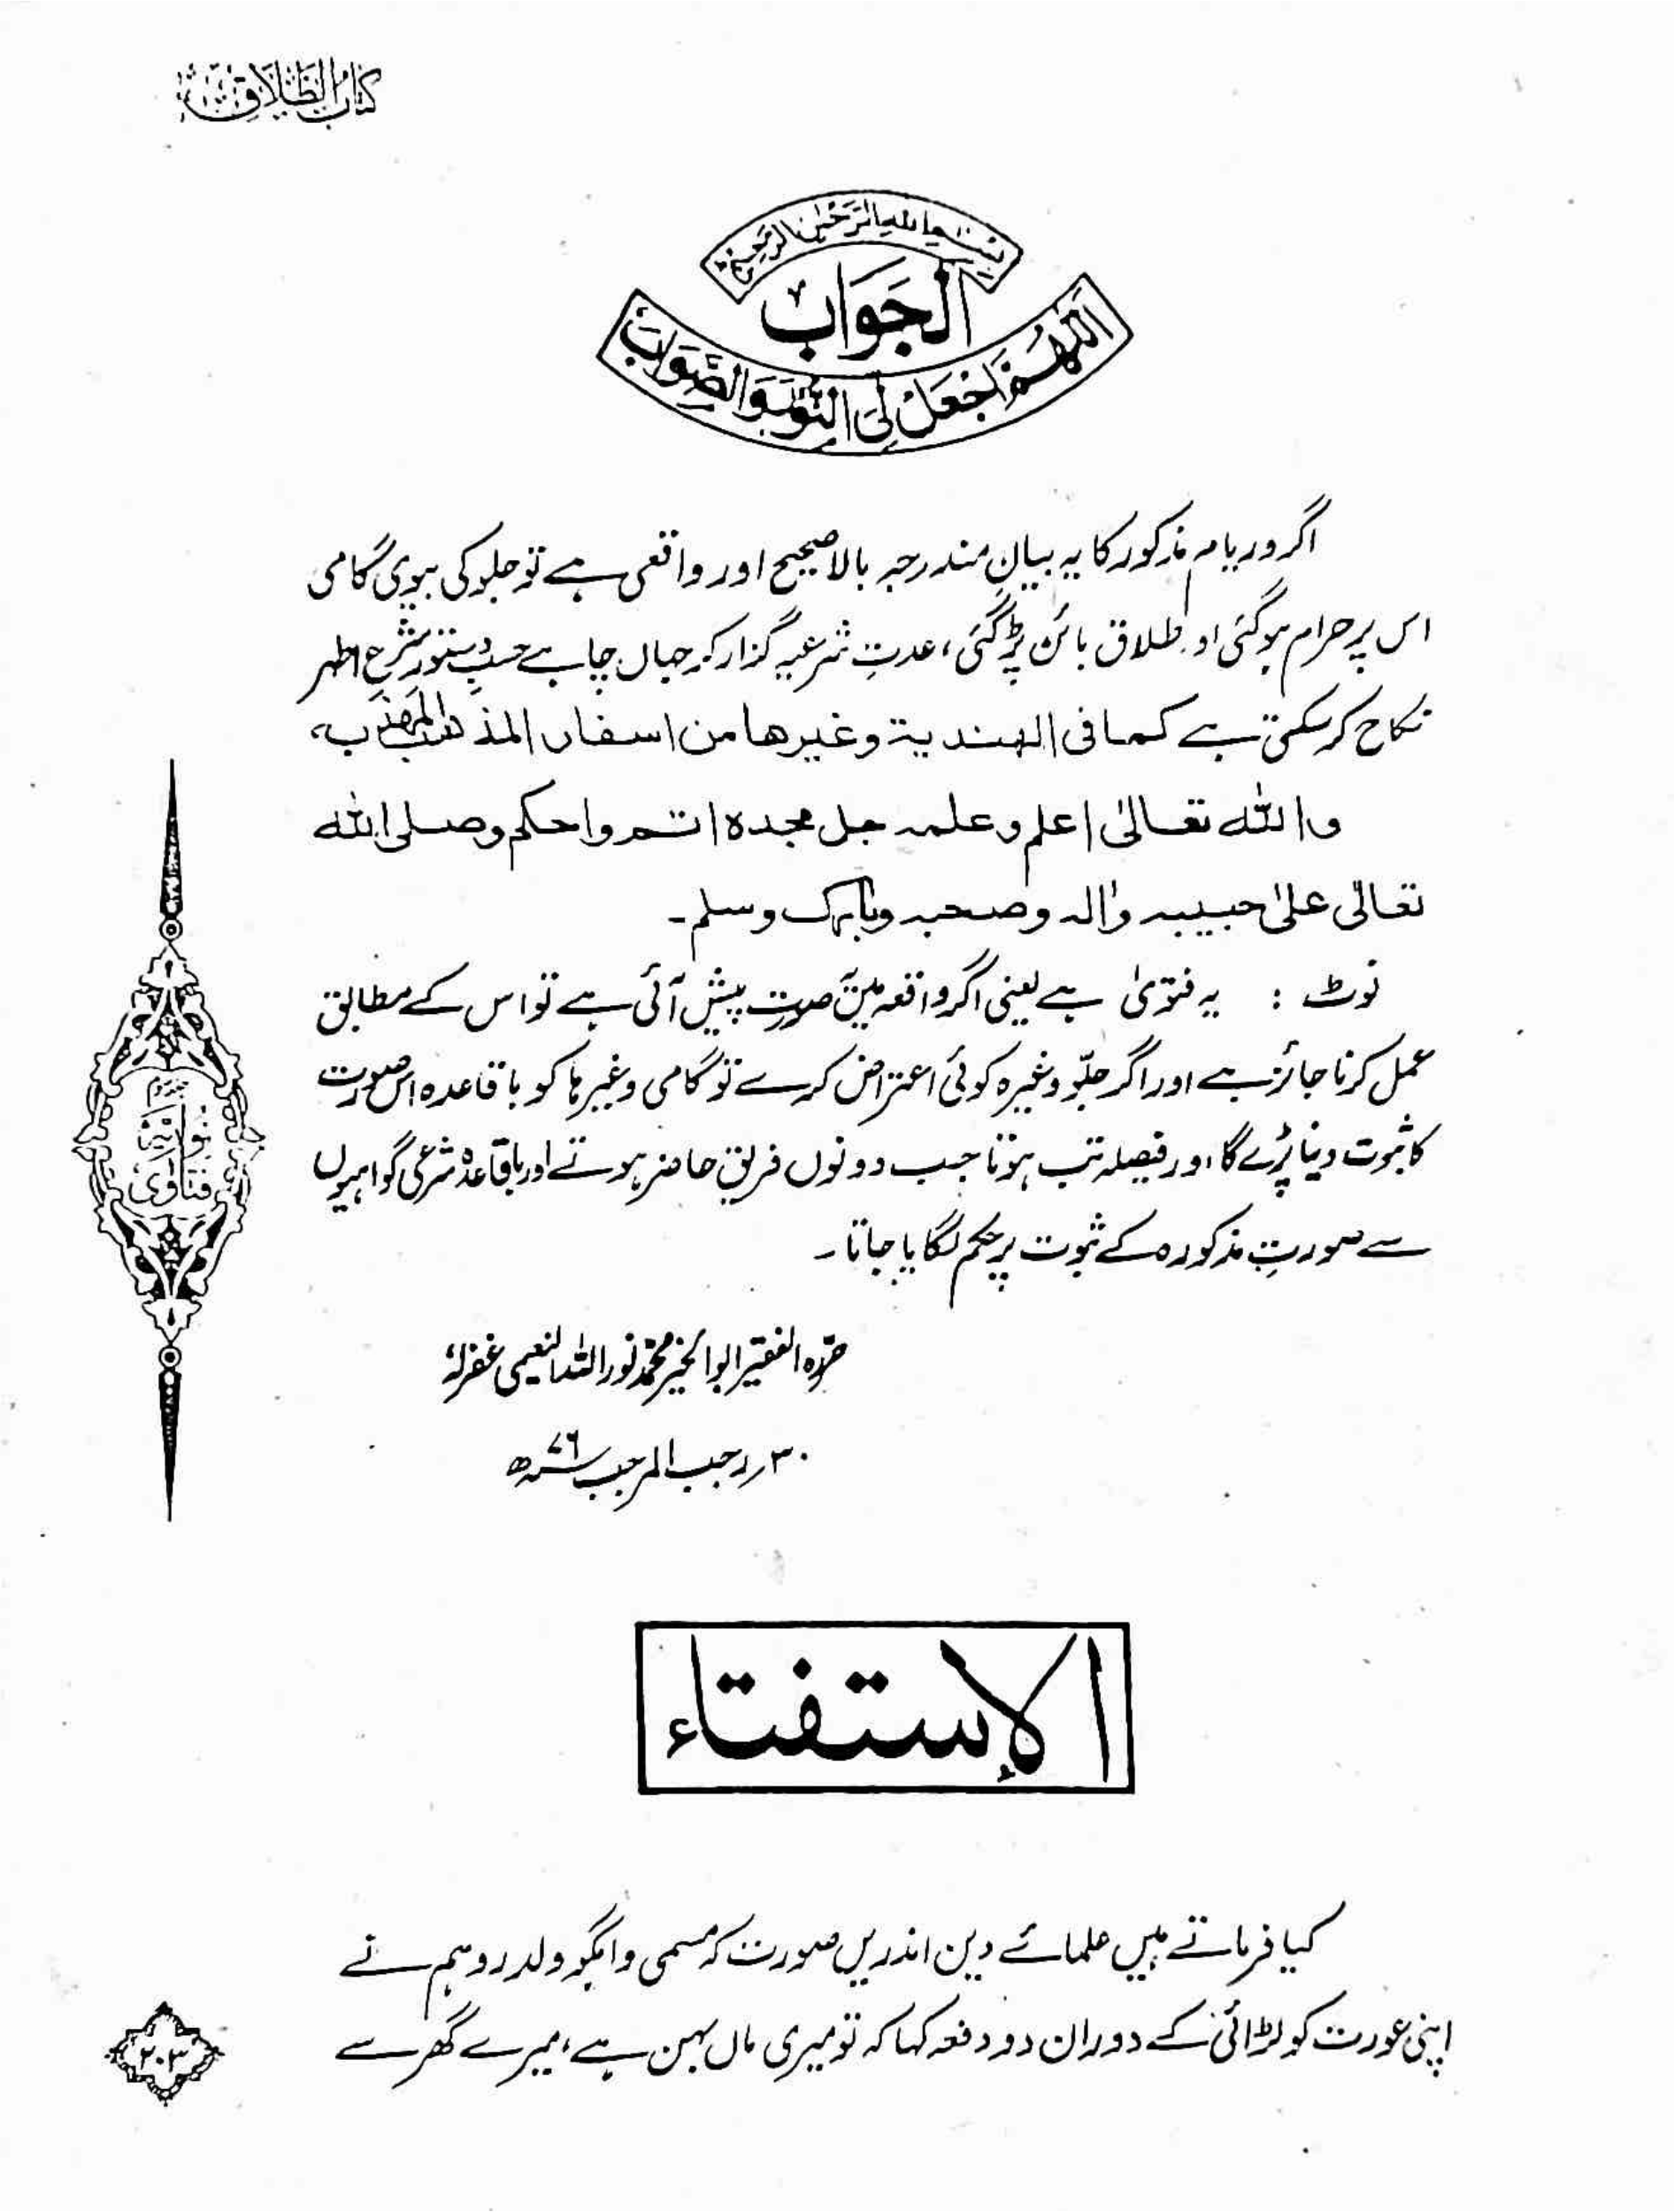 کتاب الطلاق
بسم الله الرحمن الرحيم
الجواب
اللهم اجعل لى النور والصواب
اگر وریام مذکور کا یہ بیانِ مندرجہ بالا صحیح اور واقعی ہے تو جلو کی بیوی گامی
اس پر حرام ہو گئی اور طلاق بائن پڑ گئی، عدتِ شرعیہ گزار کر جہاں چاہے حسبِ دستورِ شرعِ اطہر
نکاح کر سکتی ہے کما فی الہندیۃ وغیرھا من اسفار المذھب المھذب،
واللہ تعالیٰ اعلم وعلمہ جل مجدہ اتم واحکم وصلی اللہ
تعالیٰ علیٰ حبیبہ واٰلہ وصحبہ وبارک وسلم۔
نوٹ : یہ فتویٰ ہے یعنی اگر واقعہ میں یہ صورت پیش آئی ہے تو اس کے مطابق
عمل کرنا جائز ہے اور اگر جلّو وغیرہ کوئی اعتراض کرے تو گامی وغیرہا کو باقاعدہ اس صورت
کا ثبوت دینا پڑے گا، اور فیصلہ تب ہوتا جب دونوں فریق حاضر ہوتے اور باقاعدہ شرعی گواہیوں
سے صورتِ مذکورہ کے ثبوت پر حکم لگایا جاتا۔
حررہ الفقیر ابوالخیر محمد نور اللہ النعیمی غفرلہٗ
۳۰؍ رجب المرجب ۷۶ سنہ ھ
فتاویٰ نوریہ
الإستفتاء
کیا فرماتے ہیں علمائے دین اندریں صورت کہ مسمی واہگو ولد روہم نے
اپنی عورت کو لڑائی کے دوران دو دفعہ کہا کہ تو میری ماں بہن ہے، میرے گھر سے
۲۰۳